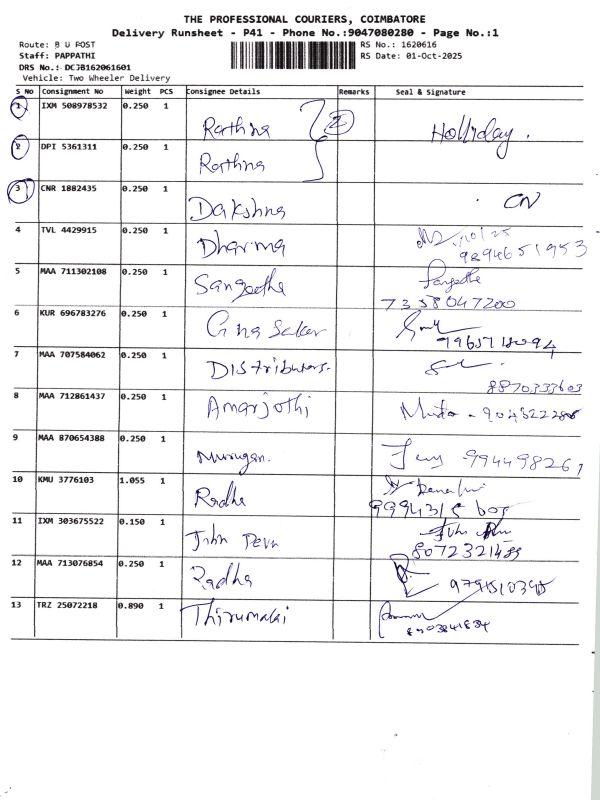 THE PROFESSIONAL COURIERS, COIMBATORE
Delivery Runsheet - P41 - Phone No.:9047080280 - Page No.:1
Route: B U POST
RS No.: 1620616
Staff: PAPPATHI
RS Date: 01-Oct-2025
DRS No.: DCJB162061601
Vehicle: Two Wheeler Delivery
S No Consignment No Weight PCS Consignee Details Remarks Seal & Signature
1 IXM 508978532 0.250 1 Rathna 2 Holliday.
2 DPI 5361311 0.250 1 Rathna
3 CNR 1882435 0.250 1 Dakshna CN
4 TVL 4429915 0.250 1 Dharma 9894651953
5 MAA 711302108 0.250 1 Sangeetha Sangeetha
7358047200
6 KUR 696783276 0.250 1
7 MAA 707584062 0.250 1 Distributors.
8870333603
8 MAA 712861437 0.250 1 Amarjothi
9 MAA 870654388 0.250 1 Murugan. 994498261
10 KMU 3776103 1.055 1 Radha
11 IXM 303675522 0.150 1 John
12 MAA 713076854 0.250 1 Radha
13 TRZ 25072218 0.890 1 Thirumalai